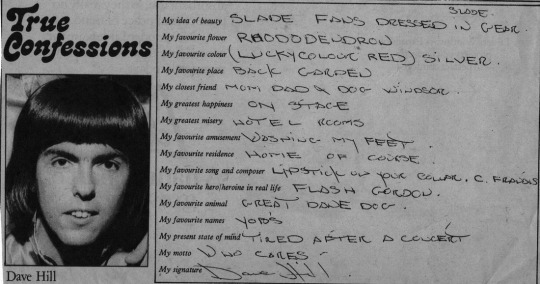 True
Confessions
SLADE.
My idea of beauty SLADE FANS DRESSED IN GEAR.
My favourite flower RHODODENDRON
My favourite colour (LUCKY COLOUR RED) SILVER.
My favourite place BACK GARDEN
My closest friend MOM DAD & DOG WINDSOR.
My greatest happiness ON STAGE
My greatest misery HOTEL ROOMS
My favourite amusement WASHING MY FEET.
My favourite residence HOME OF COURSE.
My favourite song and composer LIPSTICK ON YOUR COLLAR. C. FRANCIS
My favourite hero/heroine in real life FLASH GORDON.
My favourite animal GREAT DANE DOG.
My favourite names
My present state of mind TIRED AFTER A CONCERT
My motto WHO CARES
My signature Dave Hill
Dave Hill